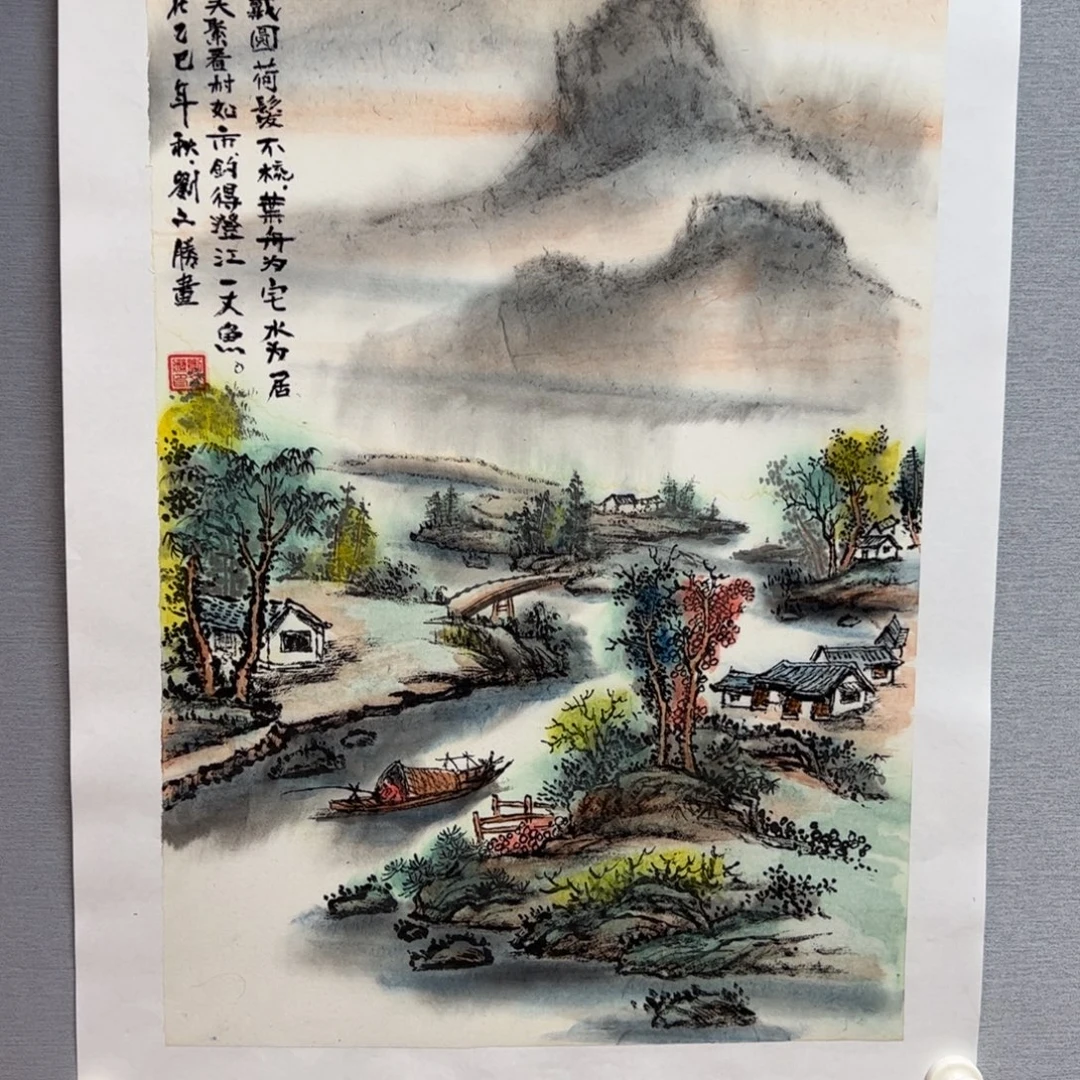 戴圓荷髮不梳.葉舟为宅水为居
聚看村如市.釣得澄江一丈魚。
乙巳年秋.劉文勝畫